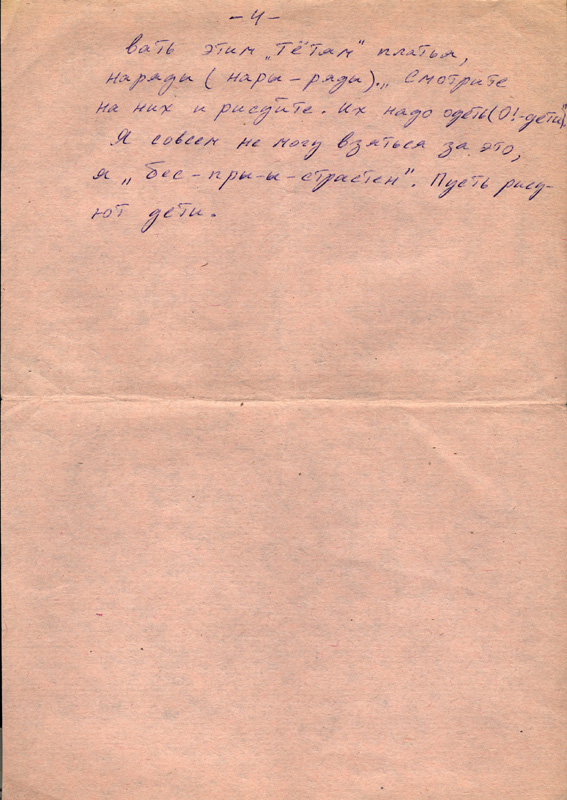 -4-
вать этим „тётям" платья,
наряды (нары-ряды). „Смотрите
на них и рисуйте. Их надо одеть (О!-дети"
Я совсем не могу взяться за это,
я „бес-при-ы-страстен". Пусть рису-
ют дети.